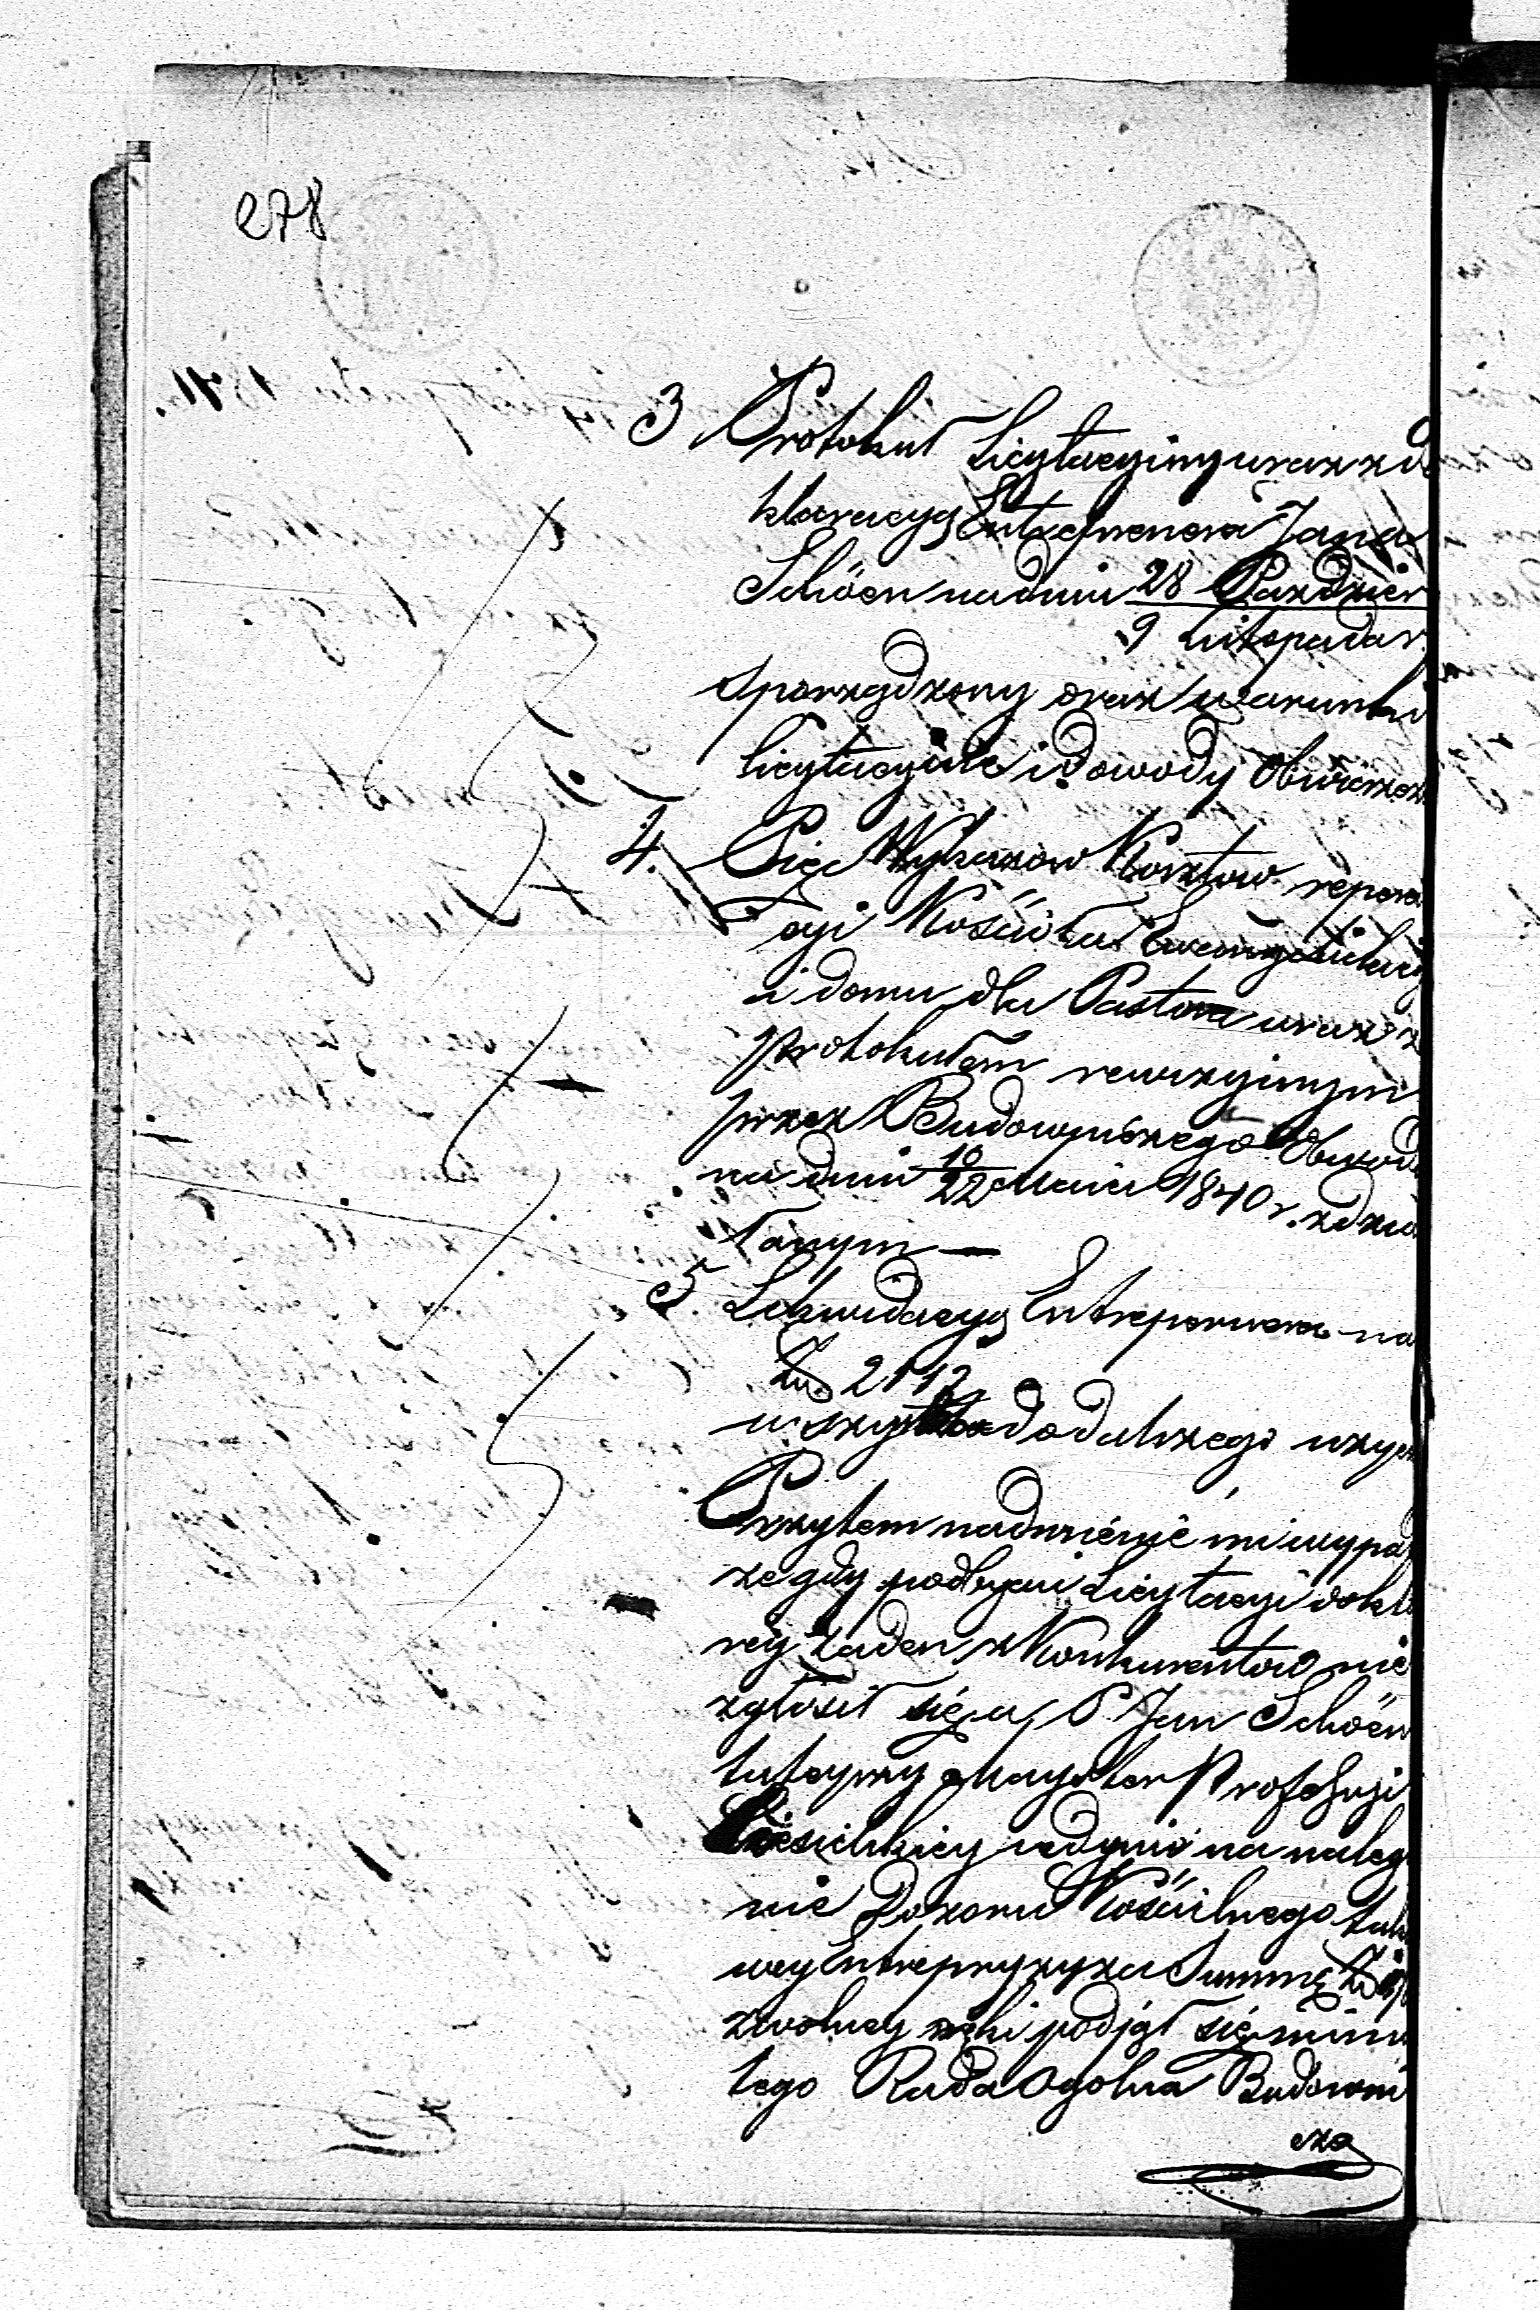 278
3 Protokuł Licytacyiny wraz z de
klaracyą Entreprenera Jana
Schöen na dniu 28 Paździer
9 Listopada r.
sporządzony oraz warunki
licytacyine i dowody obwieszcz
4. Pięć Wykazow Kosztow repera
cyi Kościoła Ewangelickiey
i domu dla Pastora wraz z
protokułem rewizyinym
przez Budowniczego Obwodu
na dniu 10/22 Maia 1840 r. zdzia
łanym —
5. Likwidacyą Entreprenera na
Złp 2112
wszystko do dalszego użyci
Przytem nadmienić mi wypad
że gdy po odbyciu Licytacyi do któ
rey żaden z Konkurentow nie
zgłosił się, a P. Jan Schöen
tuteyszy Mayster Professyi
Ciesielskiey iedynie na nalega
nie Dozoru Kościelnego tako
wey Entrepryzy za Summę Złp
z wolney ręki podjął się, mimo
tego Rada Ogolna Budowni
cza